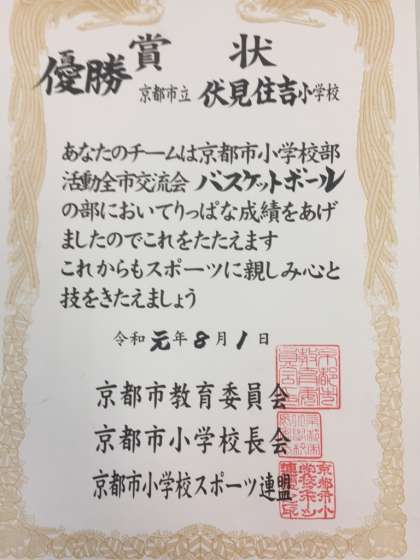 賞状
優勝
京都市立 伏見住吉小学校
あなたのチームは京都市小学校部
活動全市交流会 バスケットボール
の部においてりっぱな成績をあげ
ましたのでこれをたたえます
これからもスポーツに親しみ心と
技をきたえましょう
令和元年8月1日
京都市教育委員会
京都市小学校長会
京都市小学校スポーツ連盟